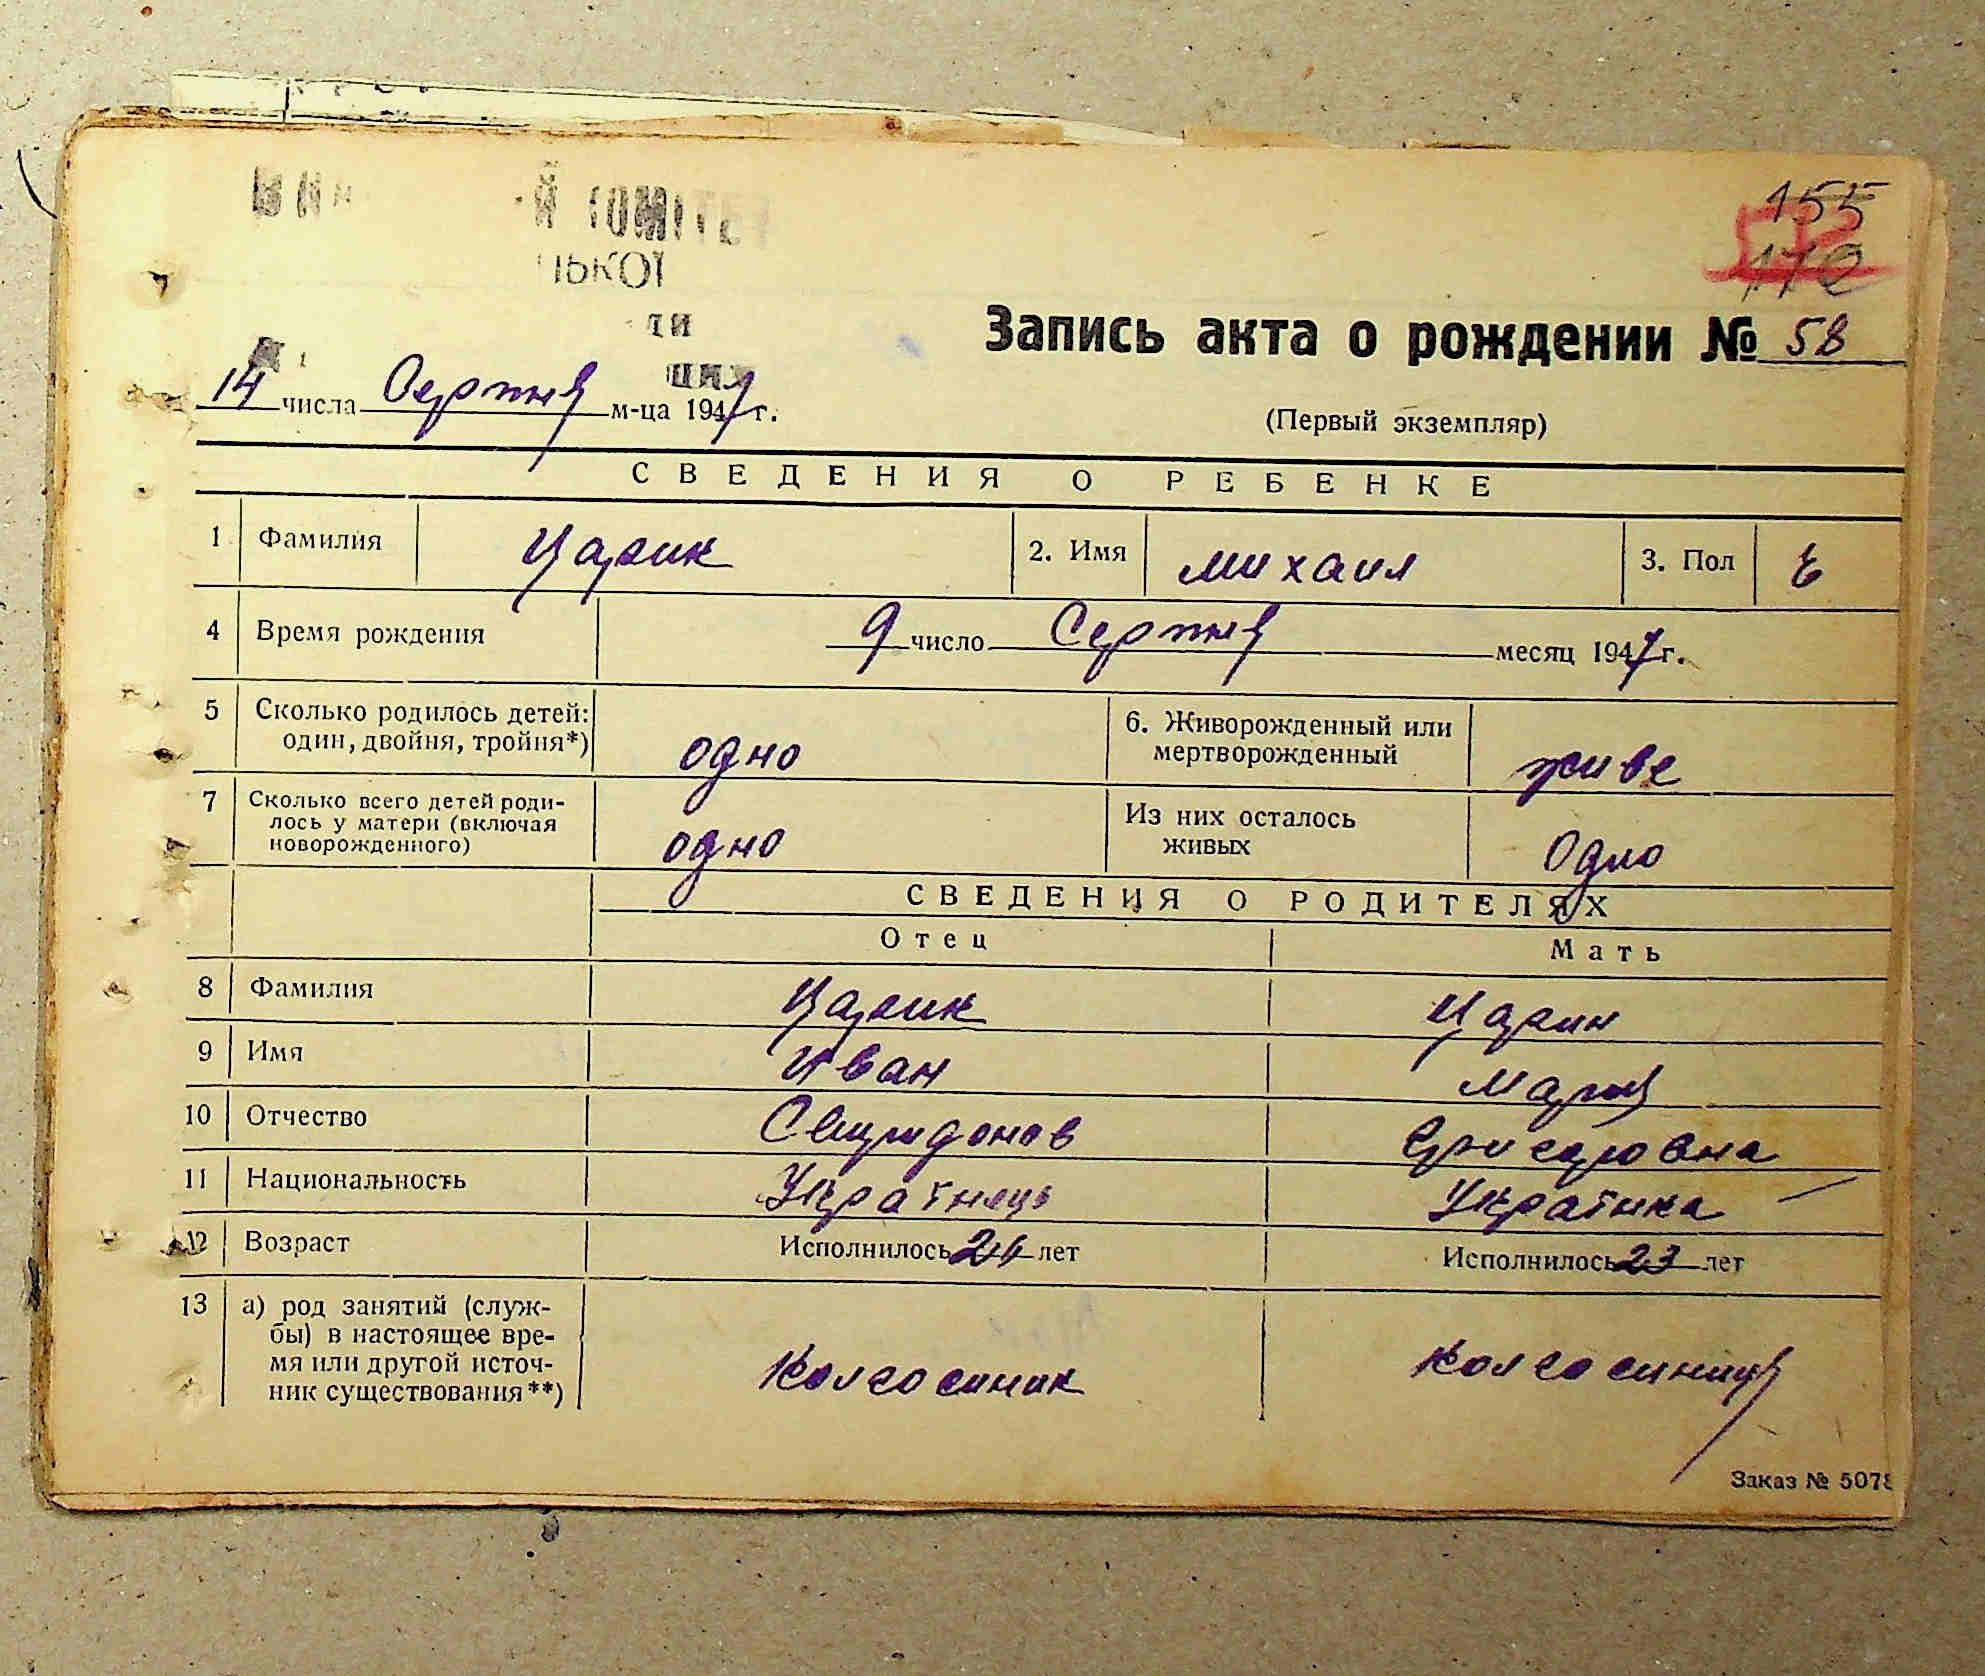 КОМІТЕ
ЦЬКОЇ
155
172
Запись акта о рождении № 58
14 числа Серпня м-ца 1947 г.
(Первый экземпляр)
СВЕДЕНИЯ О РЕБЕНКЕ
1 Фамилия Царик 2. Имя Михаил 3. Пол
4 Время рождения 9 число Серпня месяц 1947 г.
5 Сколько родилось детей: один, двойня, тройня*) одно 6. Живорожденный или мертворожденный живе
7 Сколько всего детей родилось у матери (включая новорожденного) одно Из них осталось живых Одно
СВЕДЕНИЯ О РОДИТЕЛЯХ
Отец Мать
8 Фамилия Царик Царик
9 Имя Иван Мария
10 Отчество Свиридонов
11 Национальность Українець Українка
12 Возраст Исполнилось лет Исполнилось 23 лет
13 а) род занятий (службы) в настоящее время или другой источник существования**) Колгоспник Колгоспниця
Заказ № 5078